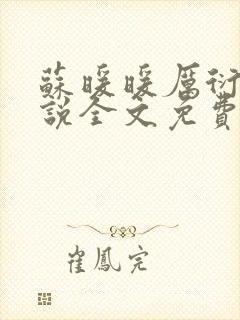 蘇暖暖厲衍
說全文免費
崔鳳完